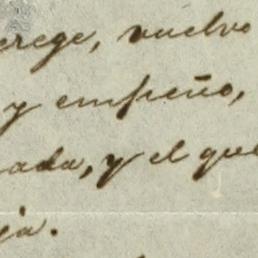 erege, vuelvo
y empeño,
ada, y el que
ja.